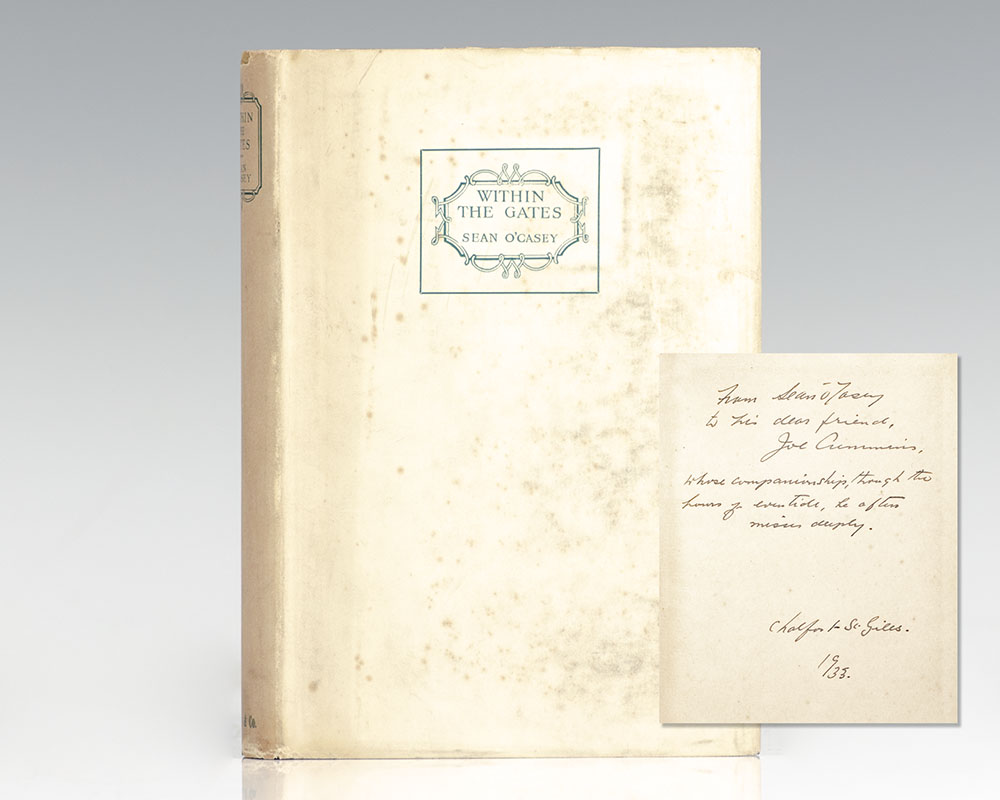 WITHIN
THE GATES
SEAN O'CASEY
& Co.
from Sean O'Casey
to his dear friend,
Joe Cummins,
whose companionship, though the
hours of eventide, he often
misses deeply.
Chalfont St. Giles.
1933.